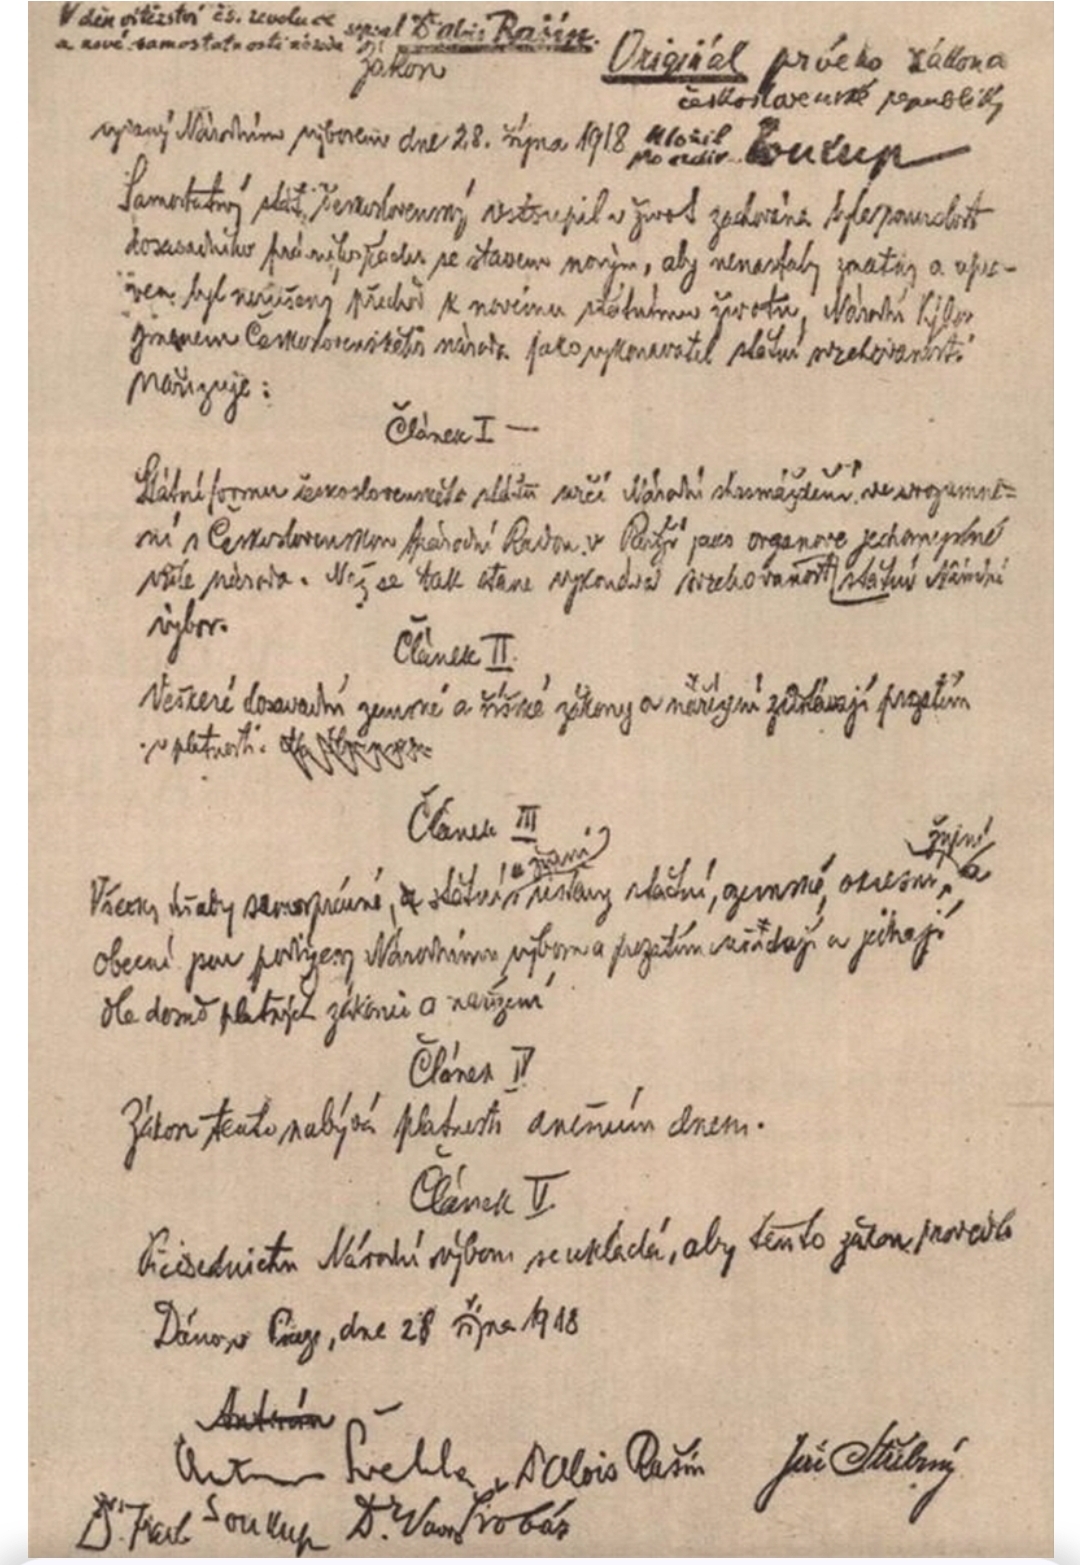 V den vítězství čs. revoluce
a nové samostatnosti národa sepsal Dr Alois Rašín.
Zákon
Originál prvého zákona
československé republiky
vydaný Národním výborem dne 28. října 1918 uložil
Soukup
Samostatný stát Československý vstoupil v život zachována byla souvislost
dosavadního právního řádu se stavem novým, aby nenastaly zmatky a upra-
ven byl nerušený přechod k novému státnímu životu, Národní Výbor
jménem Československého národa jako vykonavatel státní svrchovanosti
nařizuje:
Článek I —
Státní formu československého státu určí Národní shromáždění ve srozumě-
ní s Československou Národní Radou v Paříži jako orgánové jednomyslné
vůle národa. Než se tak stane vykonává svrchovanost státní Národní
výbor.
Článek II.
Veškeré dosavadní zemské a říšské zákony a nařízení zůstávají prozatím
v platnosti.
Článek III
žujní
a
Všecky úřady samosprávné, státní ústavy státní, zemské, okresní,
obecní jsou podřízeny Národnímu výboru a prozatím úřadují a jednají
dle dosud platných zákonů a nařízení
Článek IV
Zákon tento nabývá platnosti dnešním dnem.
Článek V.
Předsednictvu Národní výboru se ukládá, aby tento zákon provedlo
Dáno v Praze, dne 28 října 1918
Antonín
Antonín Švehla Dr Alois Rašín Jiří Stříbrný
Dr. Frant Soukup Dr. Vavro Šrobár